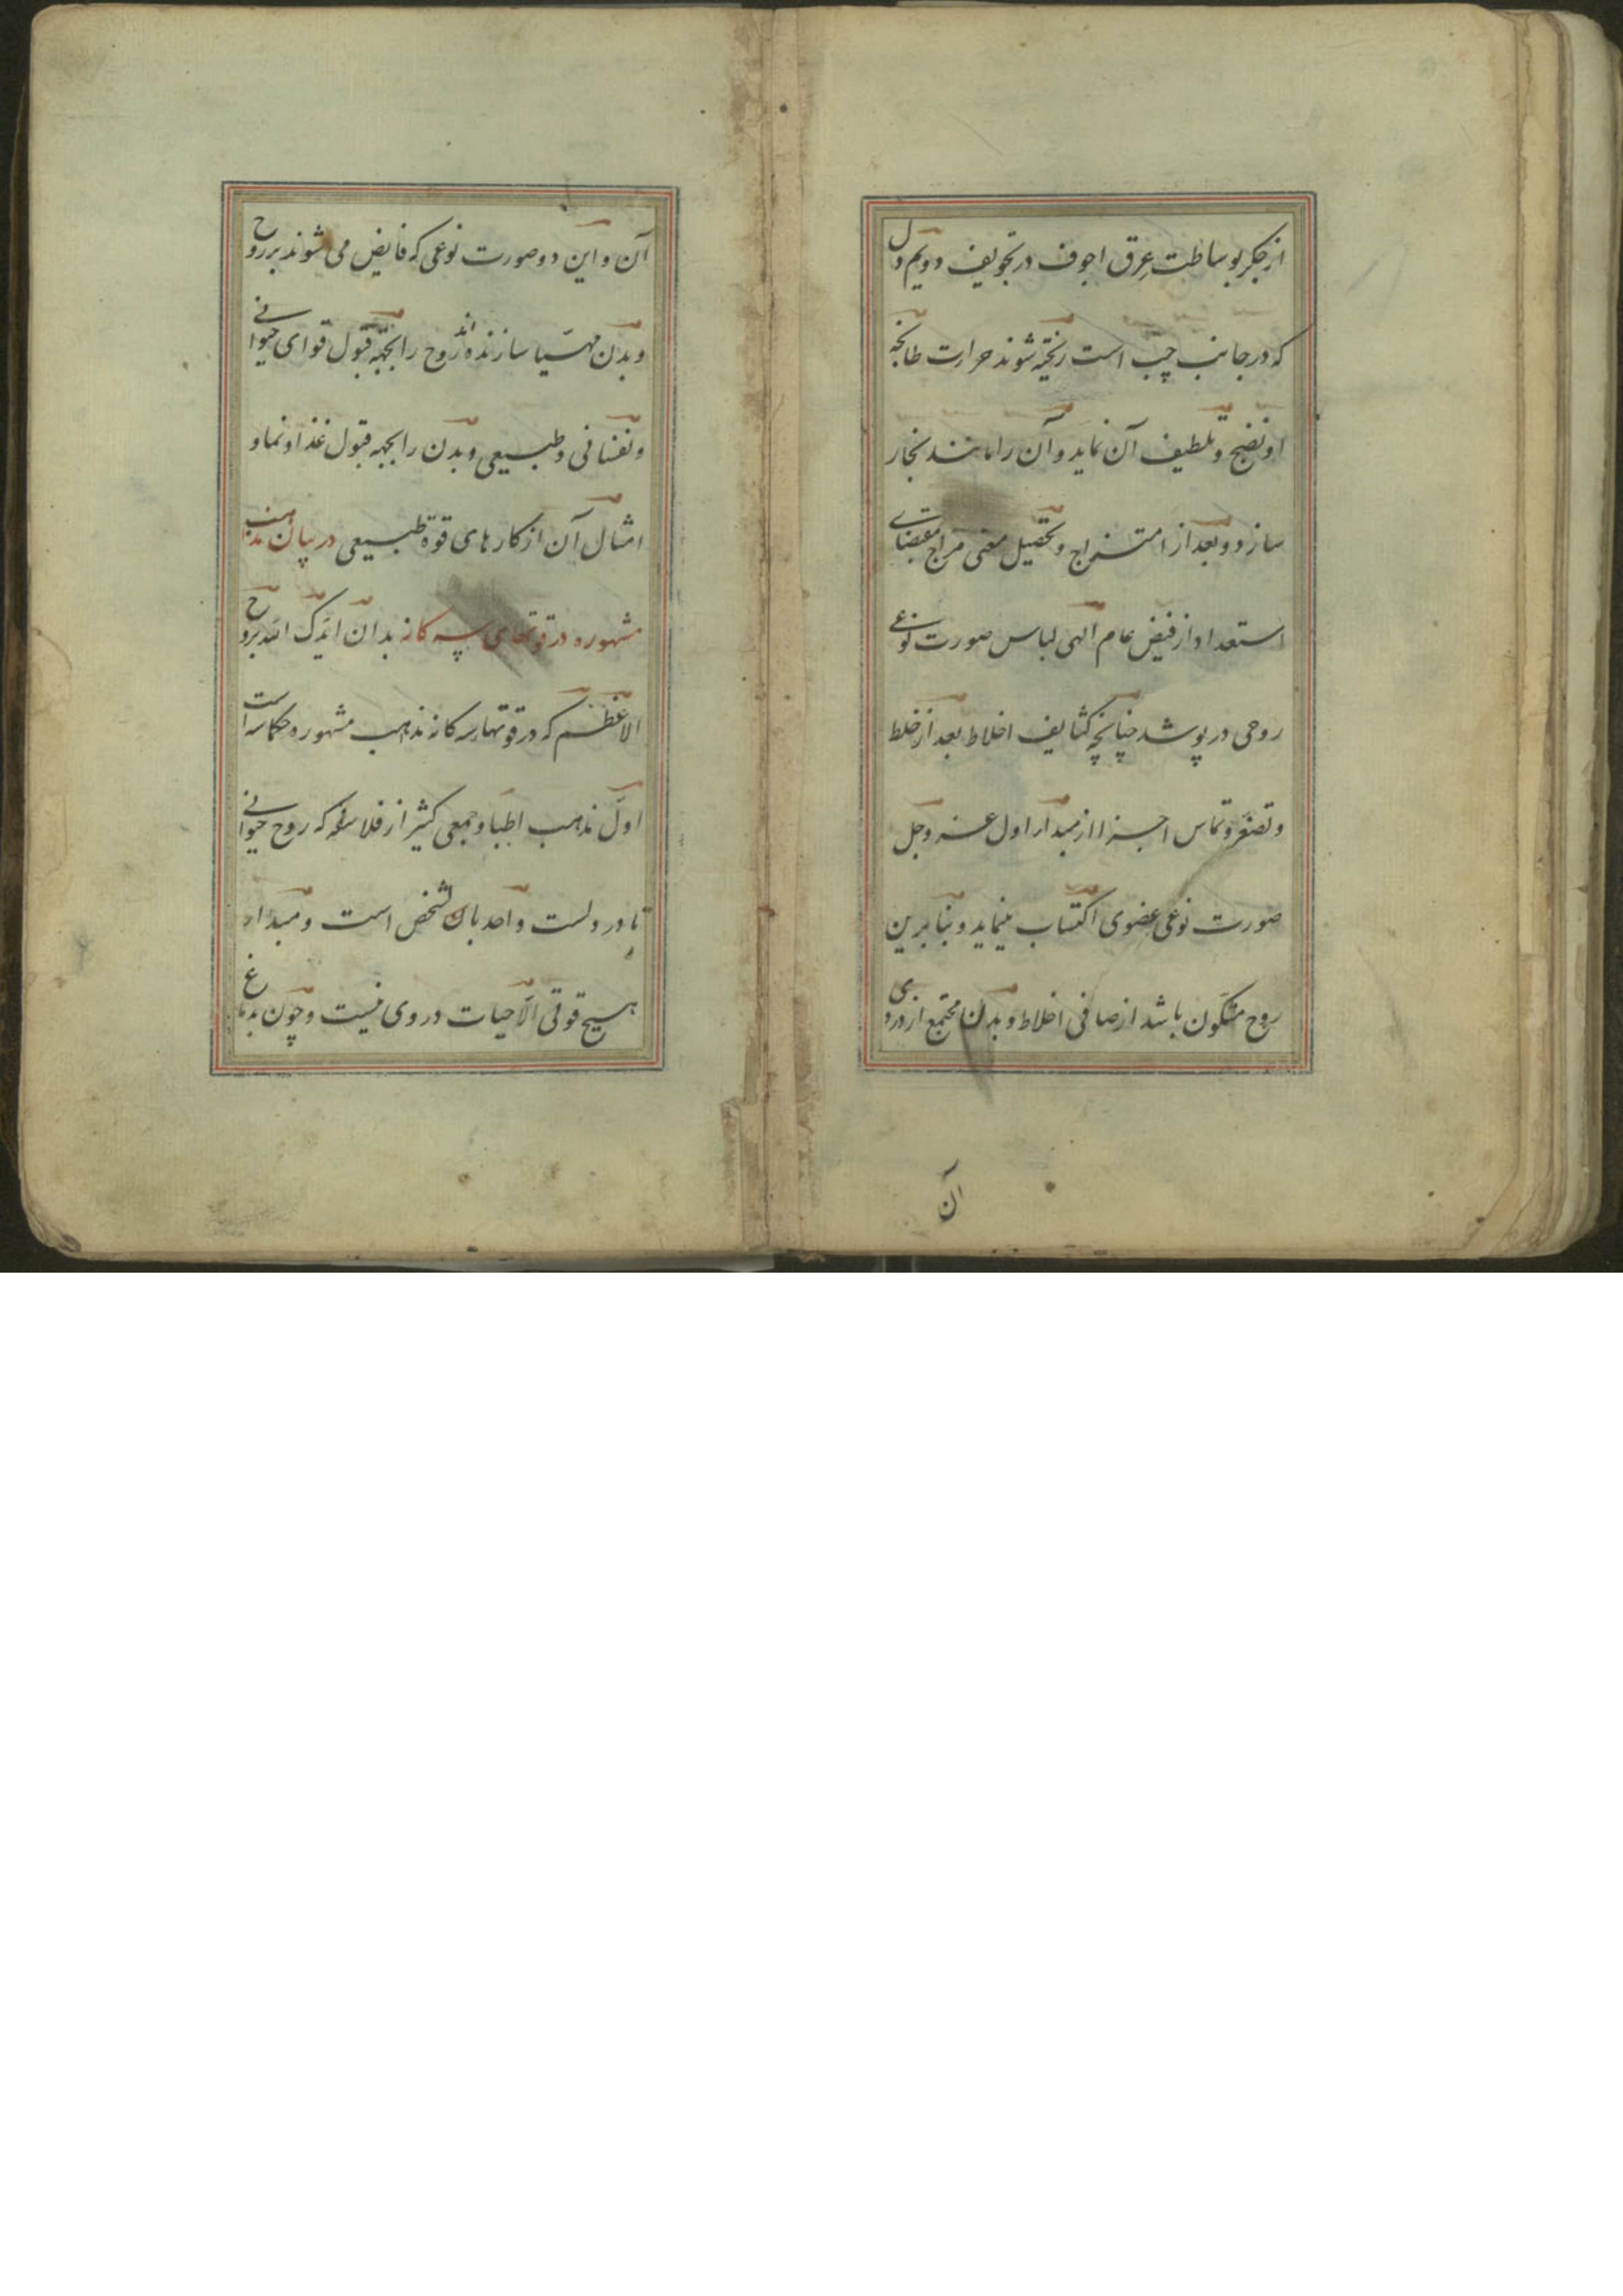 از جگر بوساطت عرق اجوف در تجویف دویم دل
که در جانب چپ است ریخته شوند حرارت طابخه
او نضج و تلطیف آن نماید و آن را مانند بخار
سازد و بعد از امتزاج و تحصیل معنی مزاج بمقتضای
استعداد از فیض عام الهی لباس صورت نوعی
روحی در پوشد چنانچه کثایف اخلاط بعد از خلط
و تصغر و تماس اجزا از مبدأ اول عز و جل
صورت نوعی عضوی اکتساب مینماید و بنابرین
روح متکون باشد از صافی اخلاط و بدن مجتمع از دردی
آن
آن و این دو صورت نوعی که فایض می شوند بر روح
و بدن مهیا سازنده اند روح را بجهة قبول قوای حیوانی
و نفسانی و طبیعی و بدن را بجهه قبول غذا و نما و
امثال آن از کارهای قوة طبیعی در بیان مذاهب
مشهوره در قوتهای سه کانه بدان ایدک الله بروح
الاعظم که در قوتهاء سه کانه مذهب مشهوره حکما سه است
اول مذهب اطبا و جمعی کثیر از فلاسفه که روح حیوانی
تا در دلست واحد بالشخص است و مبدأ
هیچ قوتی الا حیات در وی نیست و چون بدماغ